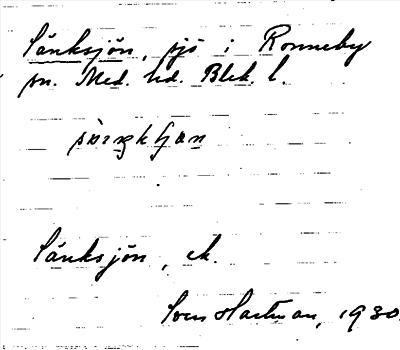 Sänksjön, sjö i Ronneby
sn. Med. hd. Blek. l.
Sänksjön, ek.
Sven Hartman, 1930.